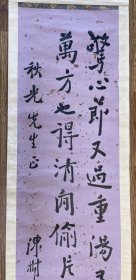 驚心節又過重陽
萬方也得清閒偷片
秋光先生正
陳樹